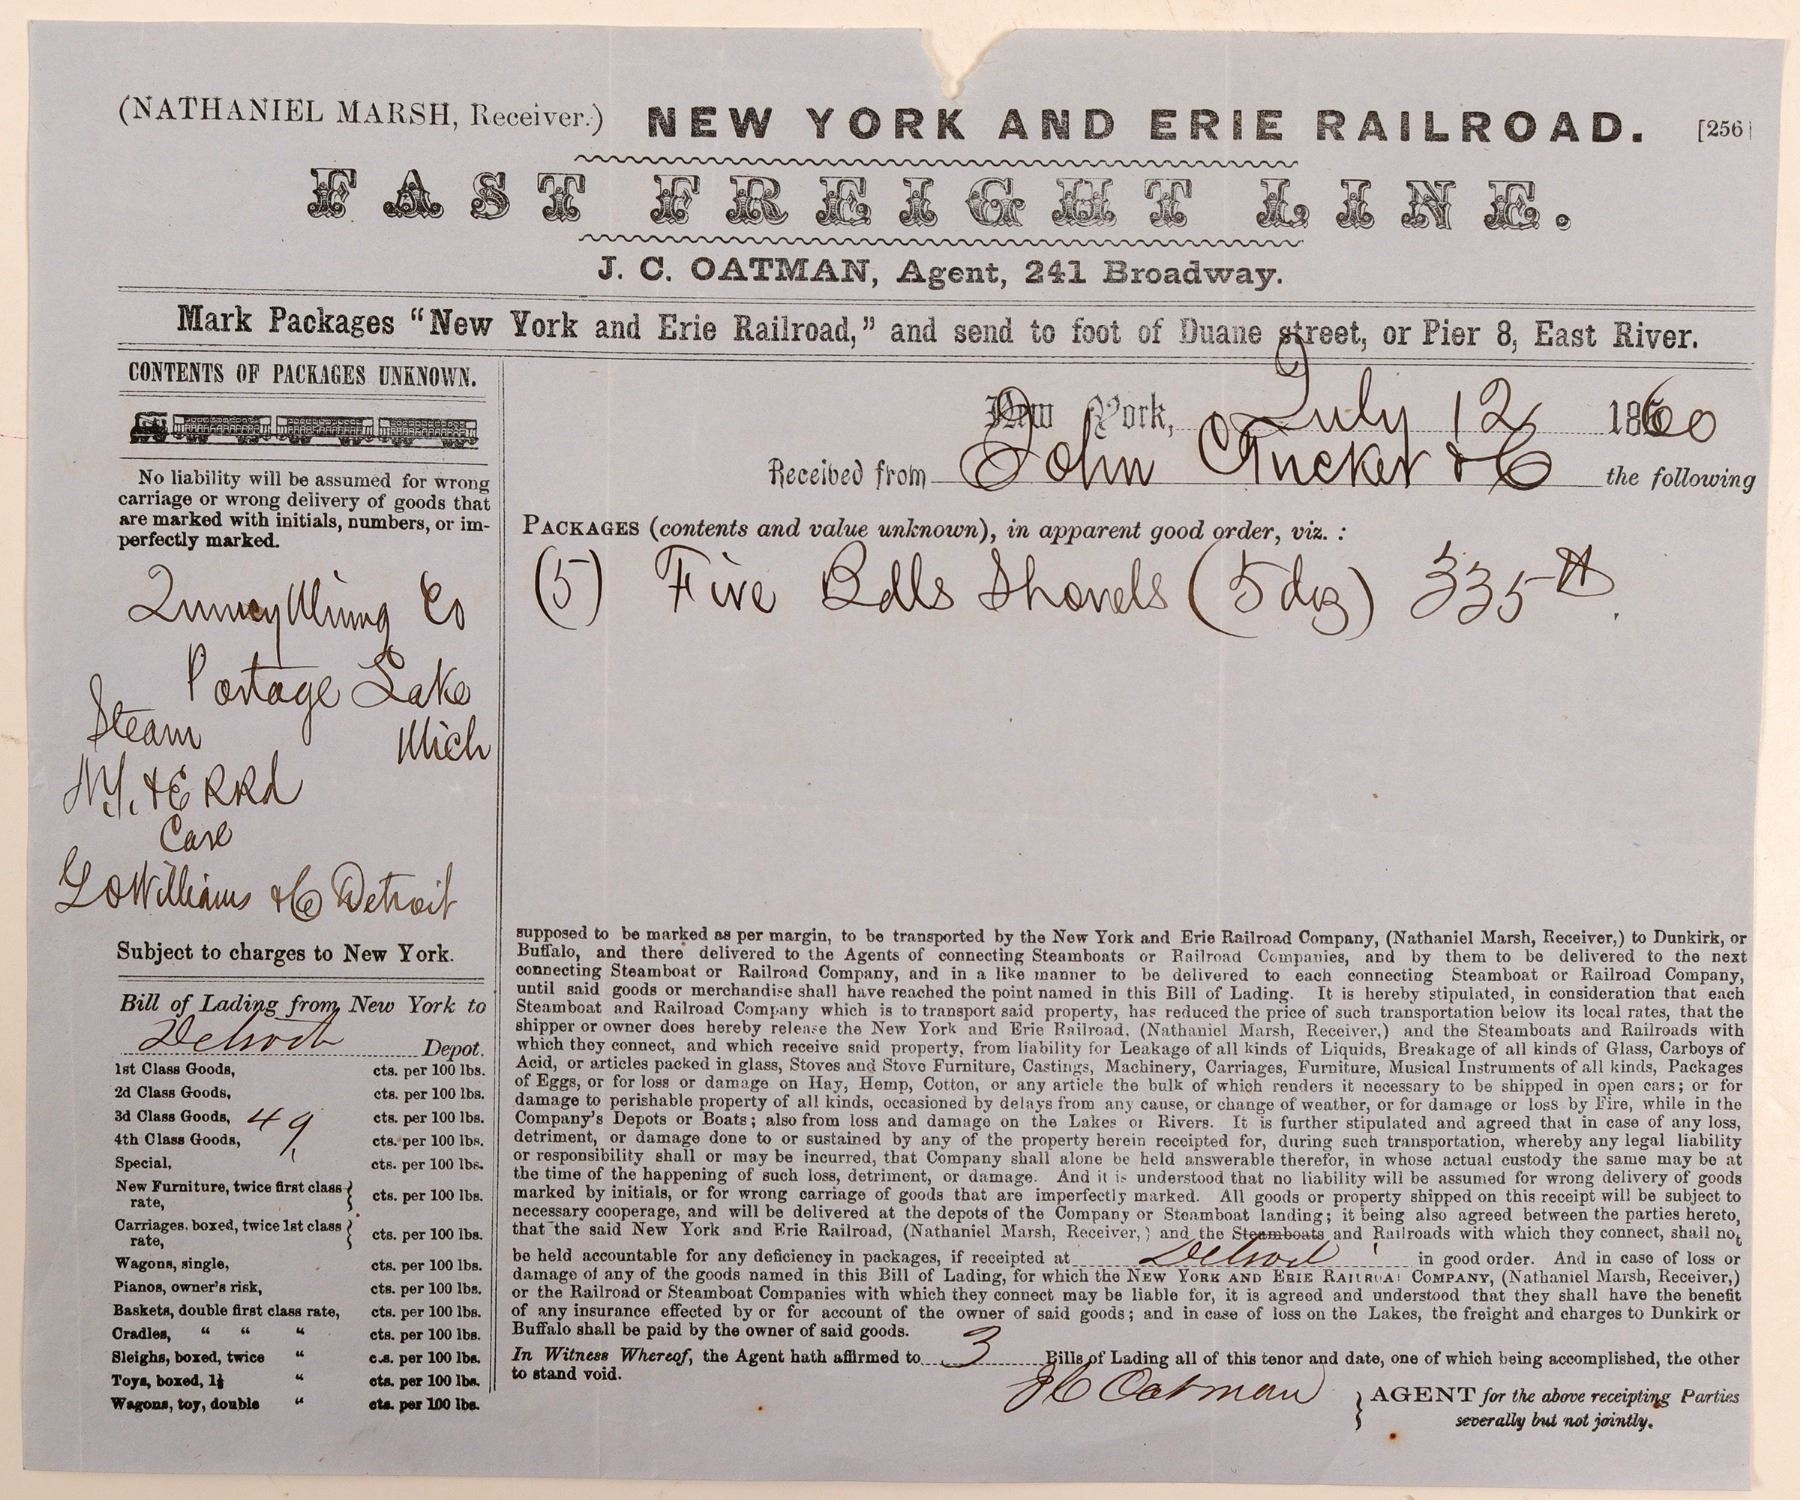 (NATHANIEL MARSH, Receiver.) NEW YORK AND ERIE RAILROAD. [256]
FAST FREIGHT LINE.
J. C. OATMAN, Agent, 241 Broadway.
Mark Packages "New York and Erie Railroad," and send to foot of Duane street, or Pier 8, East River.
CONTENTS OF PACKAGES UNKNOWN.
No liability will be assumed for wrong
carriage or wrong delivery of goods that
are marked with initials, numbers, or im-
perfectly marked.
Quincy Mining Co
Portage Lake
Mich
Steam
N.Y. & E RRd
Care
G O Williams & Co Detroit
Subject to charges to New York.
Bill of Lading from New York to
Detroit Depot.
1st Class Goods, cts. per 100 lbs.
2d Class Goods, cts. per 100 lbs.
3d Class Goods, 49 cts. per 100 lbs.
4th Class Goods, cts. per 100 lbs.
Special, cts. per 100 lbs.
New Furniture, twice first class
rate, } cts. per 100 lbs.
Carriages. boxed, twice 1st class
rate, } cts. per 100 lbs.
Wagons, single, cts. per 100 lbs.
Pianos, owner's risk, cts. per 100 lbs.
Baskets, double first class rate, cts. per 100 lbs.
Cradles, " " " cts. per 100 lbs.
Sleighs, boxed, twice " c.s. per 100 lbs.
Toys, boxed, 1½ " cts. per 100 lbs.
Wagons, toy, double " cts. per 100 lbs.
New York, July 12 1860
Received from John Tucker & Co the following
PACKAGES (contents and value unknown), in apparent good order, viz. :
(5) Five Bdls Shovels (5 dz) 335 lb
supposed to be marked as per margin, to be transported by the New York and Erie Railroad Company, (Nathaniel Marsh, Receiver,) to Dunkirk, or
Buffalo, and there delivered to the Agents of connecting Steamboats or Railroad Companies, and by them to be delivered to the next
connecting Steamboat or Railroad Company, and in a like manner to be delivered to each connecting Steamboat or Railroad Company,
until said goods or merchandise shall have reached the point named in this Bill of Lading. It is hereby stipulated, in consideration that each
Steamboat and Railroad Company which is to transport said property, has reduced the price of such transportation below its local rates, that the
shipper or owner does hereby release the New York and Erie Railroad, (Nathaniel Marsh, Receiver,) and the Steamboats and Railroads with
which they connect, and which receive said property, from liability for Leakage of all kinds of Liquids, Breakage of all kinds of Glass, Carboys of
Acid, or articles packed in glass, Stoves and Stove Furniture, Castings, Machinery, Carriages, Furniture, Musical Instruments of all kinds, Packages
of Eggs, or for loss or damage on Hay, Hemp, Cotton, or any article the bulk of which renders it necessary to be shipped in open cars; or for
damage to perishable property of all kinds, occasioned by delays from any cause, or change of weather, or for damage or loss by Fire, while in the
Company's Depots or Boats; also from loss and damage on the Lakes or Rivers. It is further stipulated and agreed that in case of any loss,
detriment, or damage done to or sustained by any of the property herein receipted for, during such transportation, whereby any legal liability
or responsibility shall or may be incurred, that Company shall alone be held answerable therefor, in whose actual custody the same may be at
the time of the happening of such loss, detriment, or damage. And it is understood that no liability will be assumed for wrong delivery of goods
marked by initials, or for wrong carriage of goods that are imperfectly marked. All goods or property shipped on this receipt will be subject to
necessary cooperage, and will be delivered at the depots of the Company or Steamboat landing; it being also agreed between the parties hereto,
that the said New York and Erie Railroad, (Nathaniel Marsh, Receiver,) and the Steamboats and Railroads with which they connect, shall not
be held accountable for any deficiency in packages, if receipted at Detroit in good order. And in case of loss or
damage of any of the goods named in this Bill of Lading, for which the NEW YORK AND ERIE RAILROAD COMPANY, (Nathaniel Marsh, Receiver,)
or the Railroad or Steamboat Companies with which they connect may be liable for, it is agreed and understood that they shall have the benefit
of any insurance effected by or for account of the owner of said goods; and in case of loss on the Lakes, the freight and charges to Dunkirk or
Buffalo shall be paid by the owner of said goods.
In Witness Whereof, the Agent hath affirmed to 3 Bills of Lading all of this tenor and date, one of which being accomplished, the other
to stand void.
J C Oatman } AGENT for the above receipting Parties
severally but not jointly.